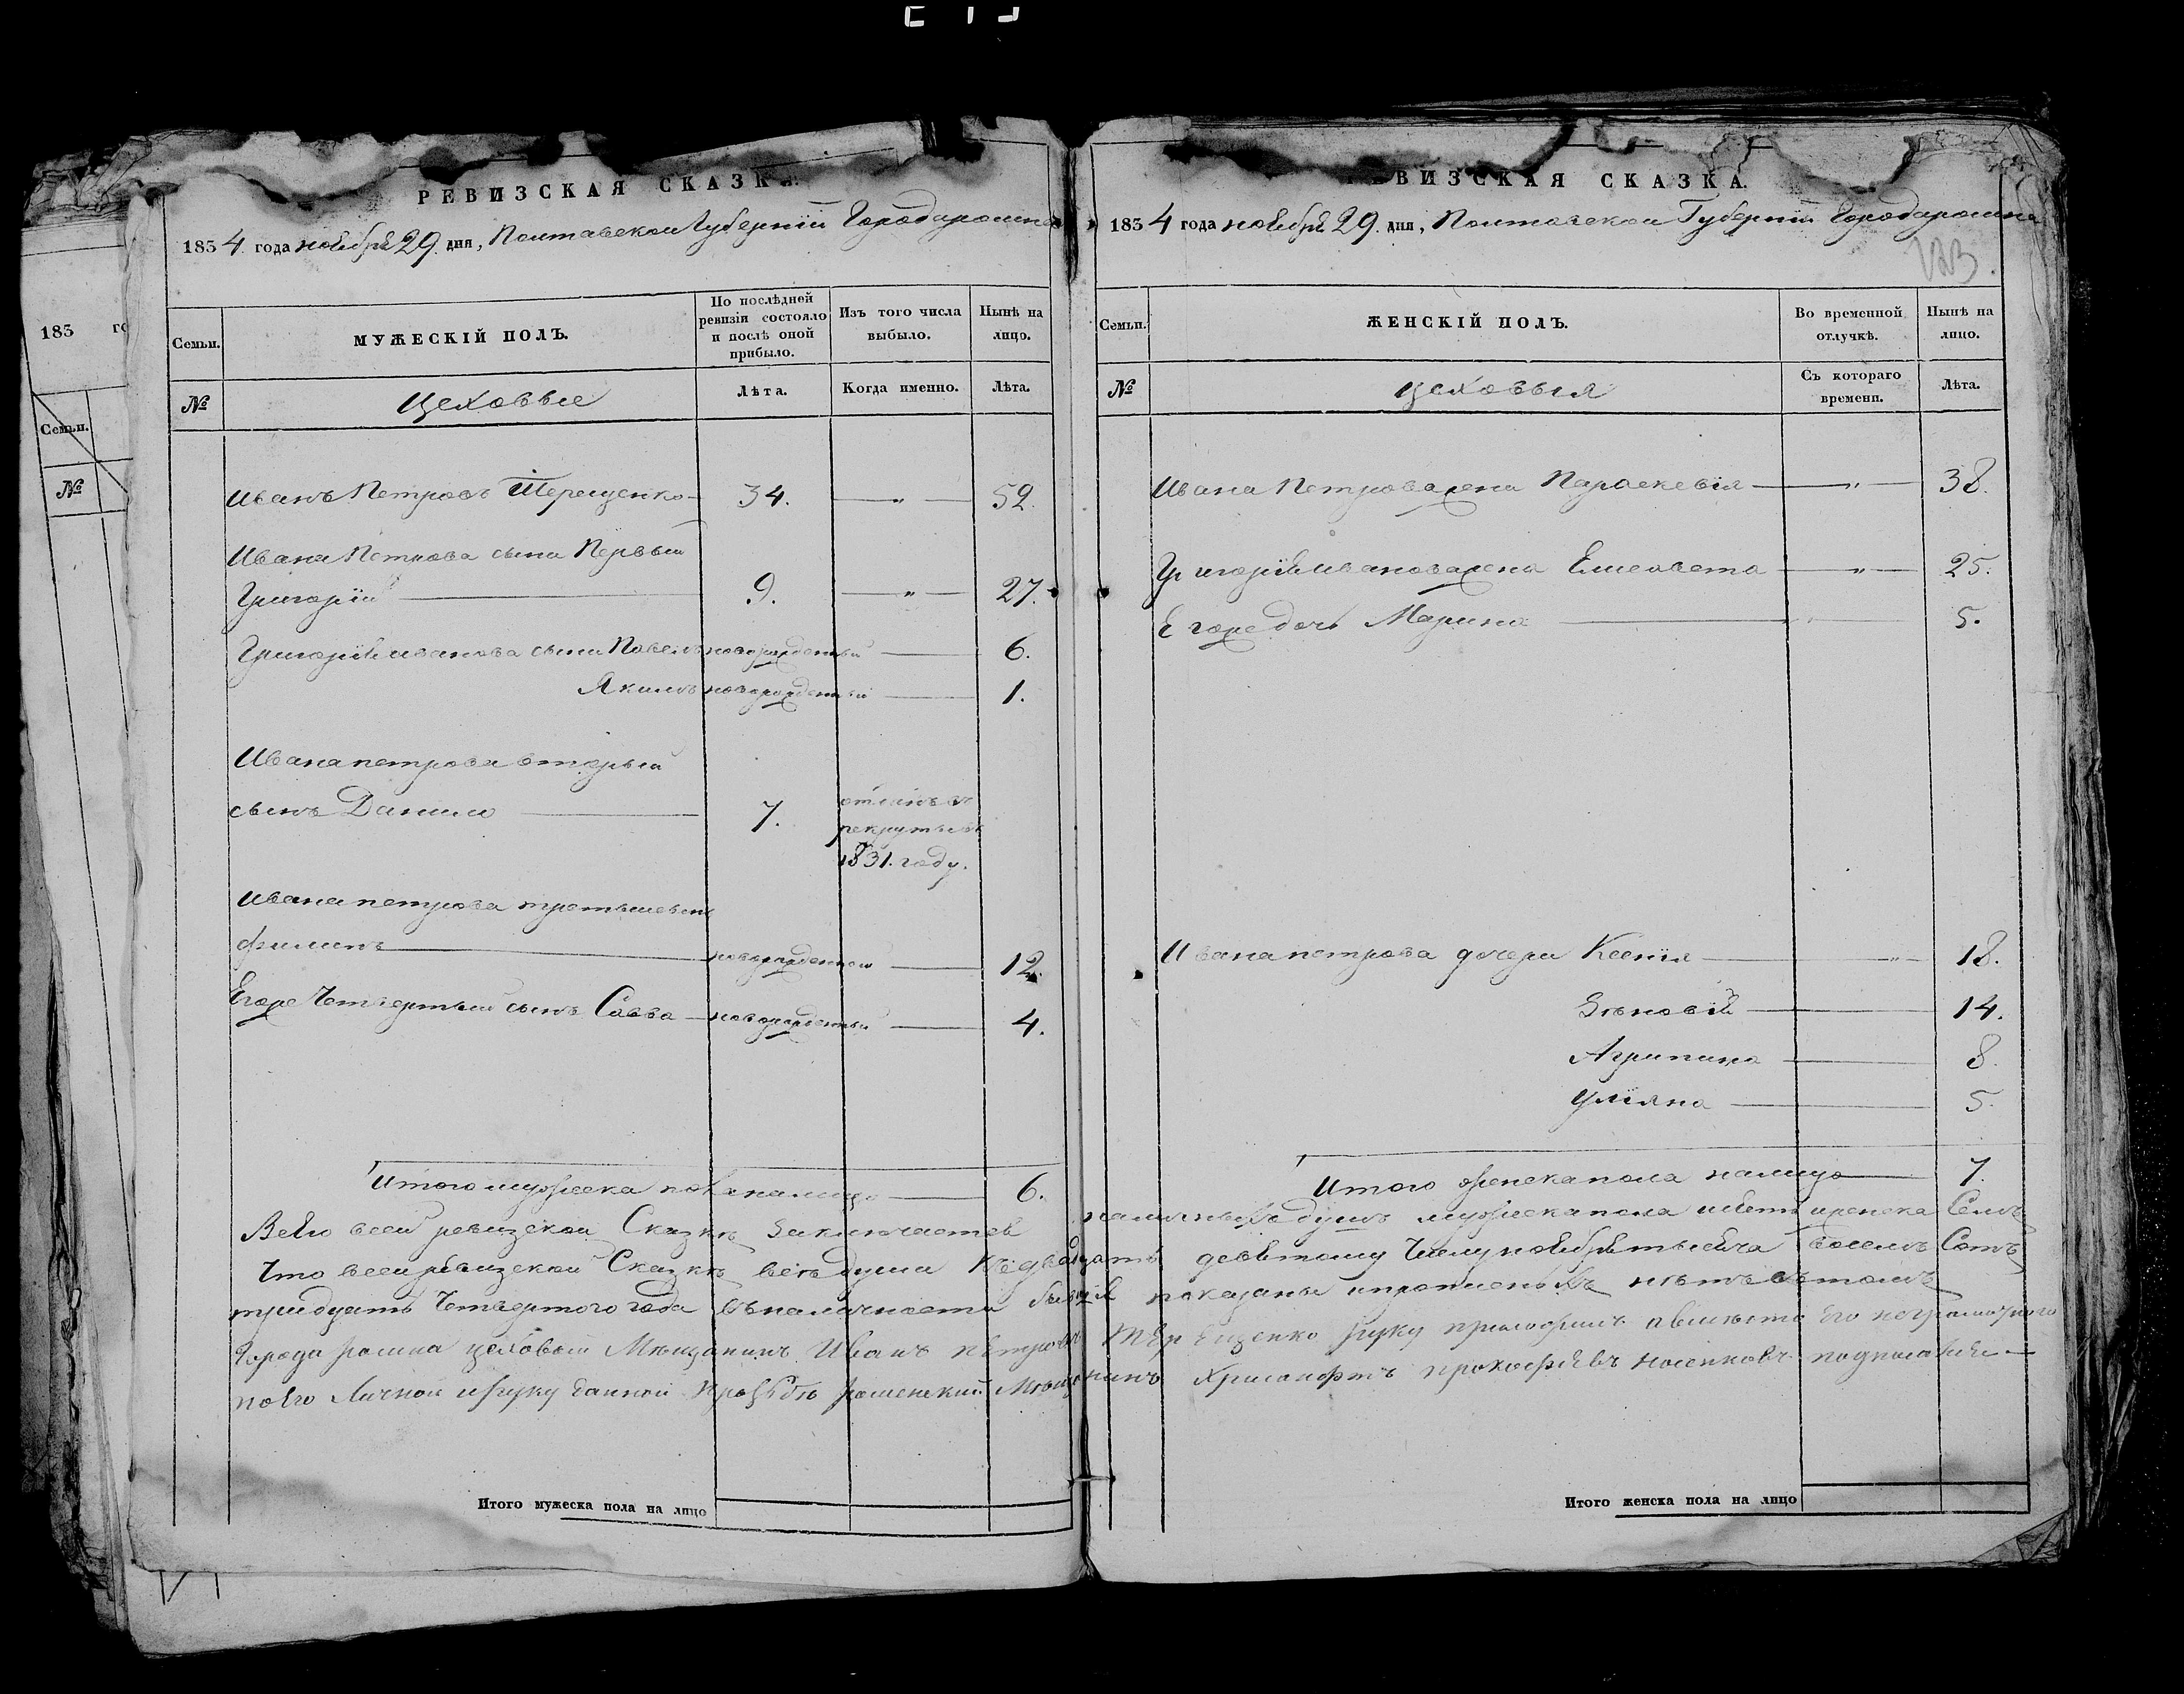 РЕВИЗСКАЯ СКАЗКА.
1834 года ноября 29. дня, Полтавской Губерніи Города Ромна
Семьи.
МУЖЕСКІЙ ПОЛЪ.
По послѣдней ревизіи состояло и послѣ оной прибыло.
Изъ того числа выбыло.
Нынѣ на лицо.
№
Цеховые
Лѣта.
Когда именно.
Лѣта.
Иванъ Петровъ Терещенко 34. " 52.
Ивана Петрова сынъ Первый
Григорій 9. " 27.
Григорія Иванова сыны Павелъ новорожденный 6.
Якимъ новорожденный 1.
Ивана петрова вторый
сынъ Данило 7.
рекруты въ
1831. году.
Ивана петрова третый сынъ
Филипъ новорожденный 12.
Егоже Четвертый сынъ Савва новорожденный 4.
Итого мужеска пола налицо 6.
Итого мужеска пола на лицо
РЕВИЗСКАЯ СКАЗКА.
1834 года ноября 29. дня, Полтавской Губерніи Города Ромна
123
Семьи.
ЖЕНСКІЙ ПОЛЪ.
Во временной отлучкѣ.
Нынѣ на лицо.
№
Цеховыя
Съ котораго времени.
Лѣта.
Ивана Петрова жена Параскевія " 38.
Григорія Иванова жена Елисавета " 25.
Егоже дочь Марина 5.
Ивана петрова дочери Ксенія " 18.
Зѣновія 14.
Агрипина 8.
Уліяна 5.
Итого женска пола налицо 7.
Всего всей ревизской Сказкѣ заключается наличныхъ душъ мужеска пола шесть женска Семь
Что всей ревизской Сказкѣ всѣ души Къ двадцать девятому Числу ноября тысяча восемь Сотъ
тридцать Четвертого года въ наличности показаны
Города ромна цеховой Мѣщанинъ Иванъ петровъ Терещенко руку приложилъ а вмѣсто Его неграмотного
по Его Личной прозбѣ роменский Мѣщанинъ Хрисанфъ прокофіевъ
Итого женска пола на лицо
183 го
Семьи.
№